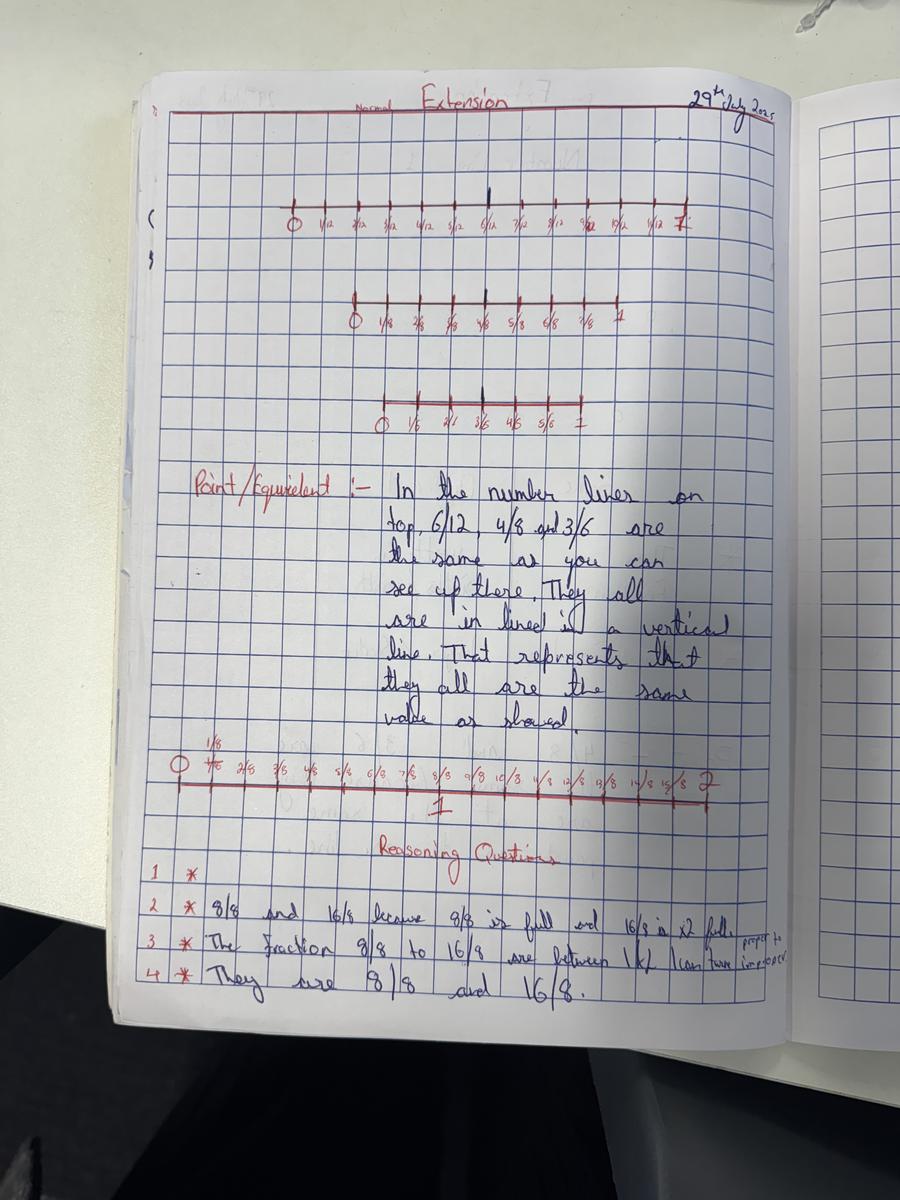 Normal Extension 29th July 2025
0 1/12 2/12 3/12 4/12 5/12 6/12 7/12 8/12 9/12 10/12 11/12 1
0 1/8 2/8 3/8 4/8 5/8 6/8 7/8 1
0 1/6 2/6 3/6 4/6 5/6 1
Point/Equivelent :- In the number lines on
top, 6/12, 4/8 and 3/6 are
the same as you can
see up there. They all
are in lined in a vertical
line. That represents that
they all are the same
value as showed.
1/8
0 2/8 3/8 4/8 5/8 6/8 7/8 8/8 9/8 10/8 11/8 12/8 13/8 14/8 15/8 2
1
Reasoning Questions
1 *
2 * 8/8 and 16/8 because 8/8 is full and 16/8 is x2 full.
3 * The fraction 8/8 to 16/8 are between 1&2. I can turn proper to improper.
4 * They are 8/8 and 16/8.